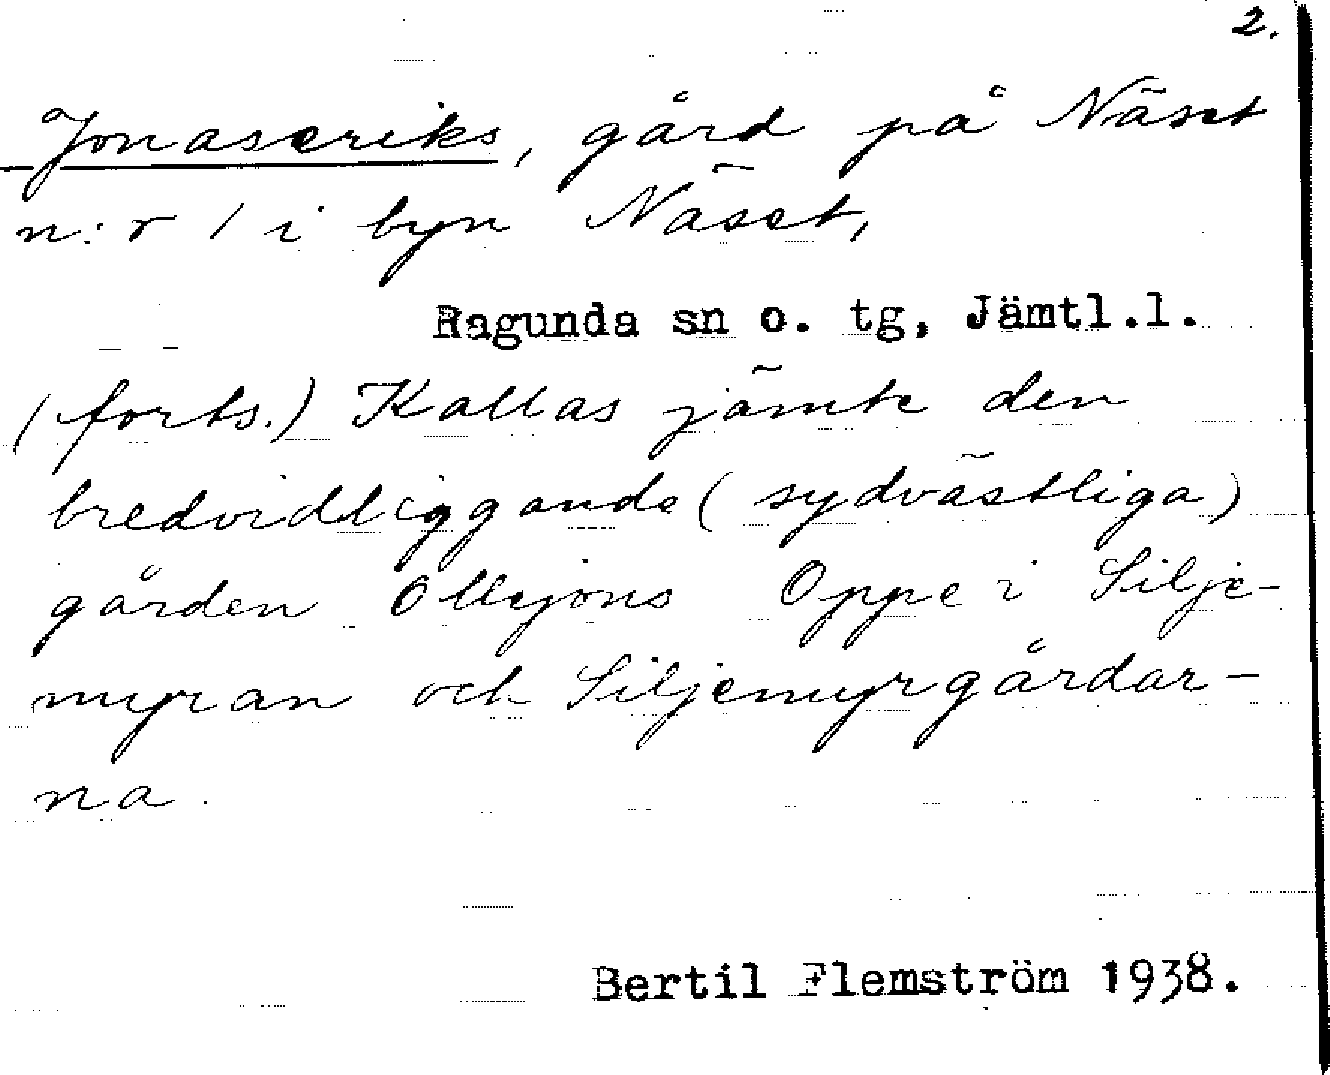 2.
Jonaseriks, gård på Näset
n:r 1 i byn Näset,
Ragunda sn o. tg, Jämtl.l.
(forts.) Kallas jämte den
bredvidliggande (sydvästliga)
gården Ollejöns Oppe i Silje-
myran och Siljemyrgårdar-
na.
Bertil Flemström 1938.